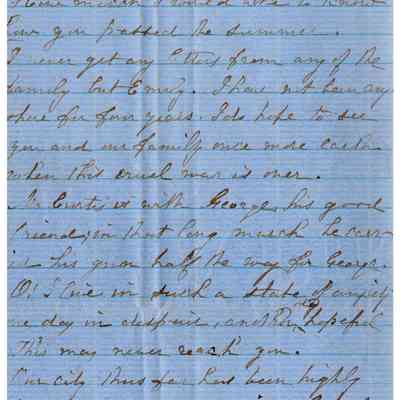 much I would like to know
how you passed the summer.
I never get any letters from any of the
family but Emily. I have not seen any
one for four years. I do hope to see
you and our family once more
when this cruel war is over.
Mr Curtis is with George, his good
friend, in that long march he carr-
ied his gun half the way for George.
O! I live in such a state of anxiety
one day in despair, and hopeful
This may never reach you.
Our city thus far has been highly